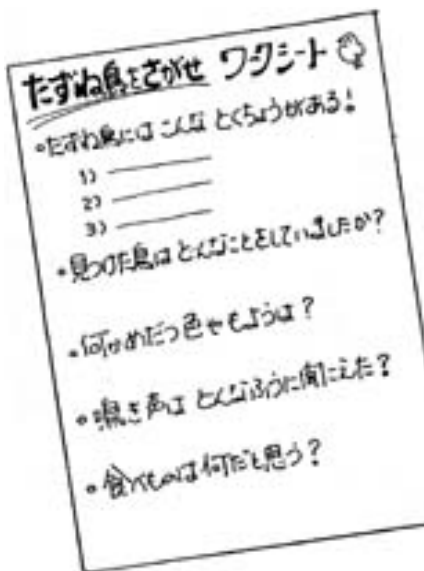 たずね鳥をさがせ ワークシート
•たずね鳥にはこんなとくちょうがある!
1)
2)
3)
•見つけた鳥はどんなことをしていましたか?
•何かめだつ色やもようは?
•鳴き声はどんなふうに聞こえた?
•食べものは何だと思う?